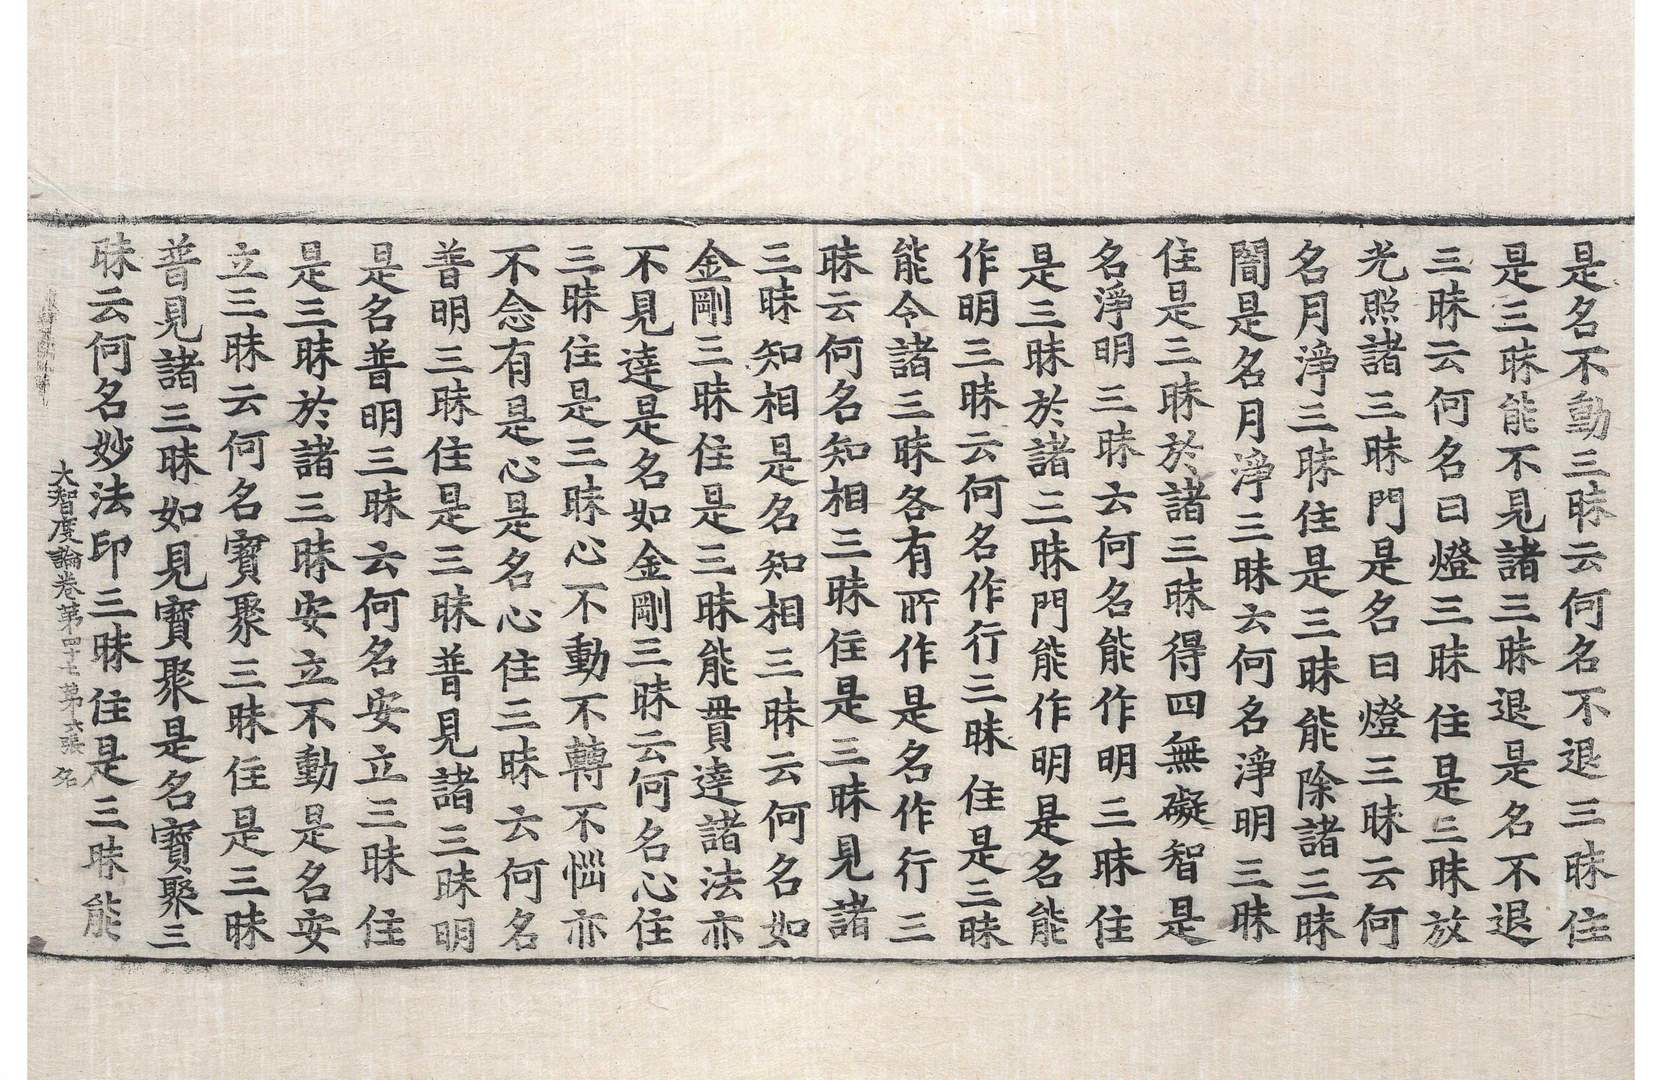 是名不動三昧云何名不退三昧住
是三昧能不見諸三昧退是名不退
三昧云何名日燈三昧住是三昧放
光照諸三昧門是名日燈三昧云何
名月淨三昧住是三昧能除諸三昧
闇是名月淨三昧云何名淨明三昧
住是三昧於諸三昧得四無礙智是
名淨明三昧云何名能作明三昧住
是三昧於諸三昧門能作明是名能
作明三昧云何名作行三昧住是三昧
能令諸三昧各有所作是名作行三
昧云何名知相三昧住是三昧見諸
三昧知相是名知相三昧云何名如
金剛三昧住是三昧能貫達諸法亦
不見達是名如金剛三昧云何名心住
三昧住是三昧心不動不轉不惱亦
不念有是心是名心住三昧云何名
普明三昧住是三昧普見諸三昧明
是名普明三昧云何名安立三昧住
是三昧於諸三昧安立不動是名安
立三昧云何名寶聚三昧住是三昧
普見諸三昧如見寶聚是名寶聚三
昧云何名妙法印三昧住是三昧能
大智度論卷第四十七 第六張 名